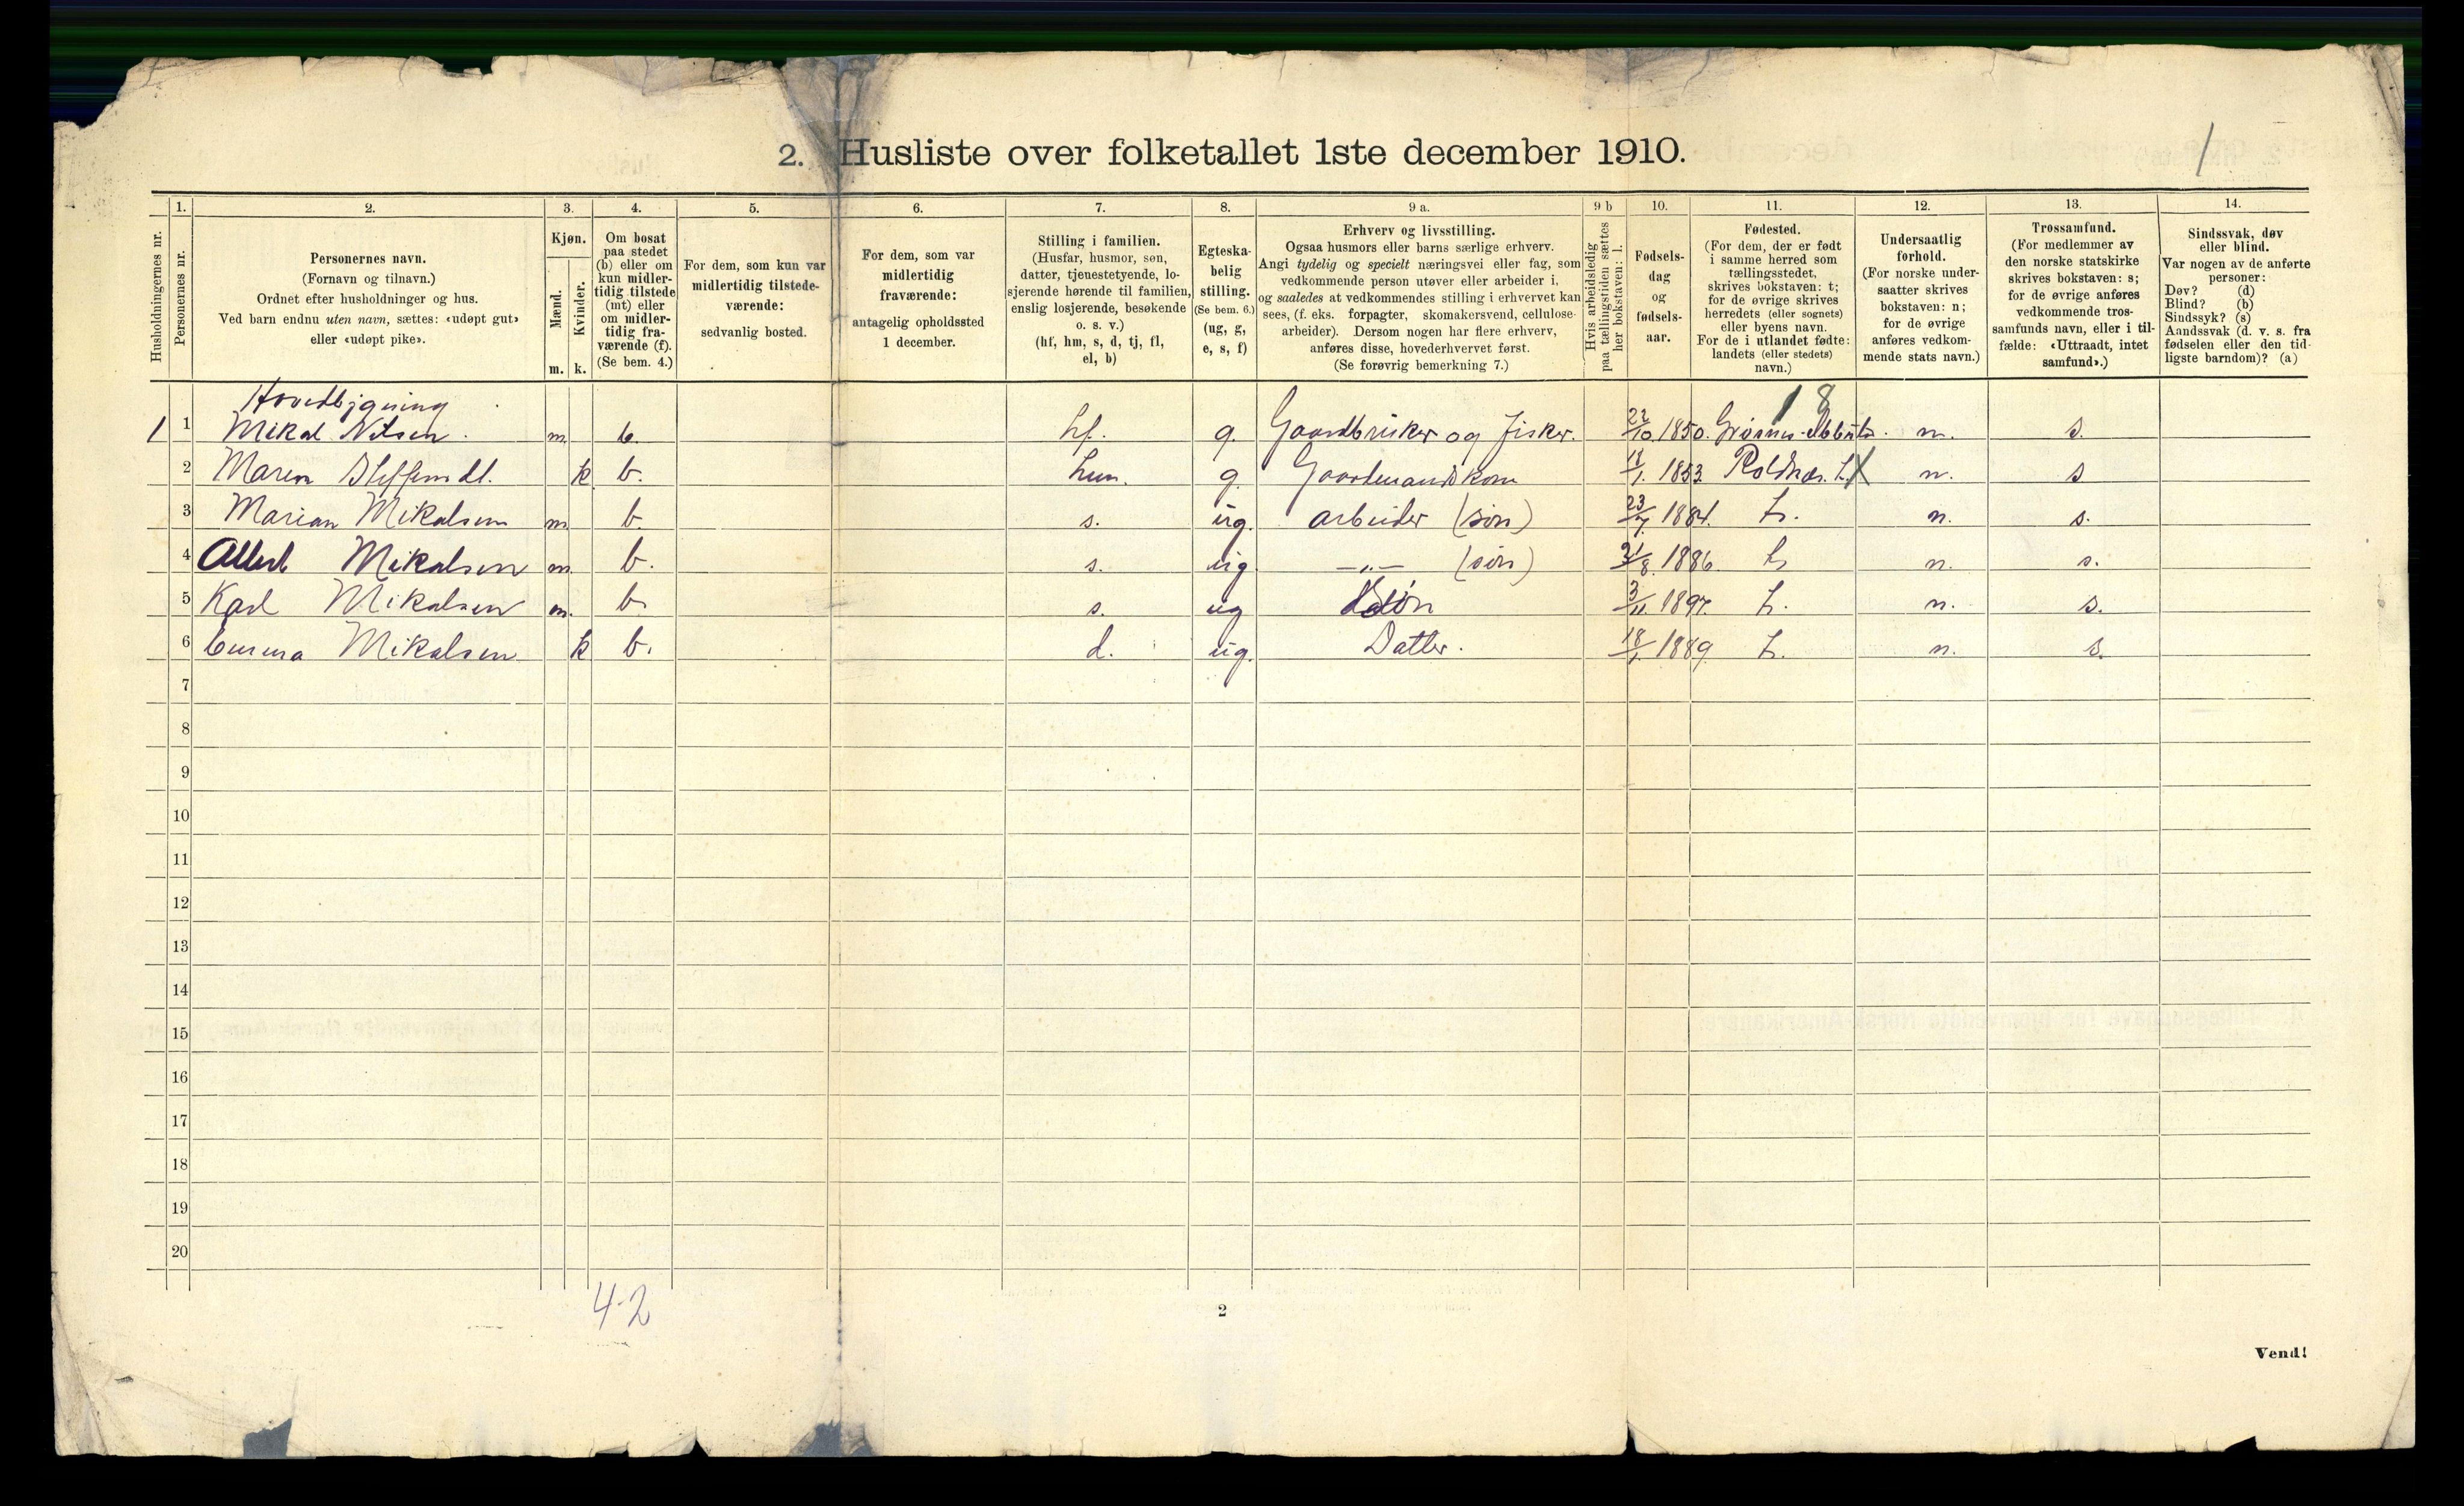 2. Husliste over folketallet 1ste december 1910.
1
Husholdningernes nr.
1.
Personernes nr.
2.
Personernes navn.
(Fornavn og tilnavn.)
Ordnet efter husholdninger og hus.
Ved barn endnu uten navn, sættes: «udøpt gut»
eller «udøpt pike».
3.
Kjøn.
Mænd.
Kvinder.
m. k.
4.
Om bosat
paa stedet
(b) eller om
kun midler-
tidig tilstede
(mt) eller
om midler-
tidig fra-
værende (f).
(Se bem. 4.)
5.
For dem, som kun var
midlertidig tilstede-
værende:
sedvanlig bosted.
6.
For dem, som var
midlertidig
fraværende:
antagelig opholdssted
1 december.
7.
Stilling i familien.
(Husfar, husmor, søn,
datter, tjenestetyende, lo-
sjerende hørende til familien,
enslig losjerende, besøkende
o. s. v.)
(hf, hm, s, d, tj, fl,
el, b)
8.
Egteska-
belig
stilling.
(Se bem. 6.)
(ug, g,
e, s, f)
9 a.
Erhverv og livsstilling.
Ogsaa husmors eller barns særlige erhverv.
Angi tydelig og specielt næringsvei eller fag, som
vedkommende person utøver eller arbeider i,
og saaledes at vedkommendes stilling i erhvervet kan
sees, (f. eks. forpagter, skomakersvend, cellulose-
arbeider). Dersom nogen har flere erhverv,
anføres disse, hovederhvervet først.
(Se forøvrig bemerkning 7.)
9 b
Hvis arbeidsledig
paa tællingstiden sættes
her bokstaven: l.
10.
Fødsels-
dag
og
fødsels-
aar.
11.
Fødested.
(For dem, der er født
i samme herred som
tællingsstedet,
skrives bokstaven: t;
for de øvrige skrives
herredets (eller sognets)
eller byens navn.
For de i utlandet fødte:
landets (eller stedets)
navn.)
12.
Undersaatlig
forhold.
(For norske under-
saatter skrives
bokstaven: n;
for de øvrige
anføres vedkom-
mende stats navn.)
13.
Trossamfund.
(For medlemmer av
den norske statskirke
skrives bokstaven: s;
for de øvrige anføres
vedkommende tros-
samfunds navn, eller i til-
fælde: «Uttraadt, intet
samfund».)
14.
Sindssvak, døv
eller blind.
Var nogen av de anførte
personer:
Døv? (d)
Blind? (b)
Sindssyk? (s)
Aandssvak (d. v. s. fra
fødselen eller den tid-
ligste barndom)? (a)
Hovedbygning
18
1 1 Mikal Nilsen. m. b. hf. g. Gaardbruker og fisker. 22/10. 1850. n. s.
2 Maren Steffensdt. k b. hm. g. Gaardmandskone 18/1. 1853 t. n. s
3 Marian Mikalsen m b. s. ug. arbeider (søn) 23/7. 1884. t. n. s.
4 Albert Mikalsen m. b. s. ug —„— (søn) 31/8. 1886. t n. s.
5 Karl Mikalsen m. b. s. ug Søn 3/11. 1897. t. n. s.
6 Emma Mikalsen k b. d. ug. Datter. 18/1. 1889 t. n. s.
7
8
9
10
11
12
13
14
15
16
17
18
19
20
4-2
2
Vend!